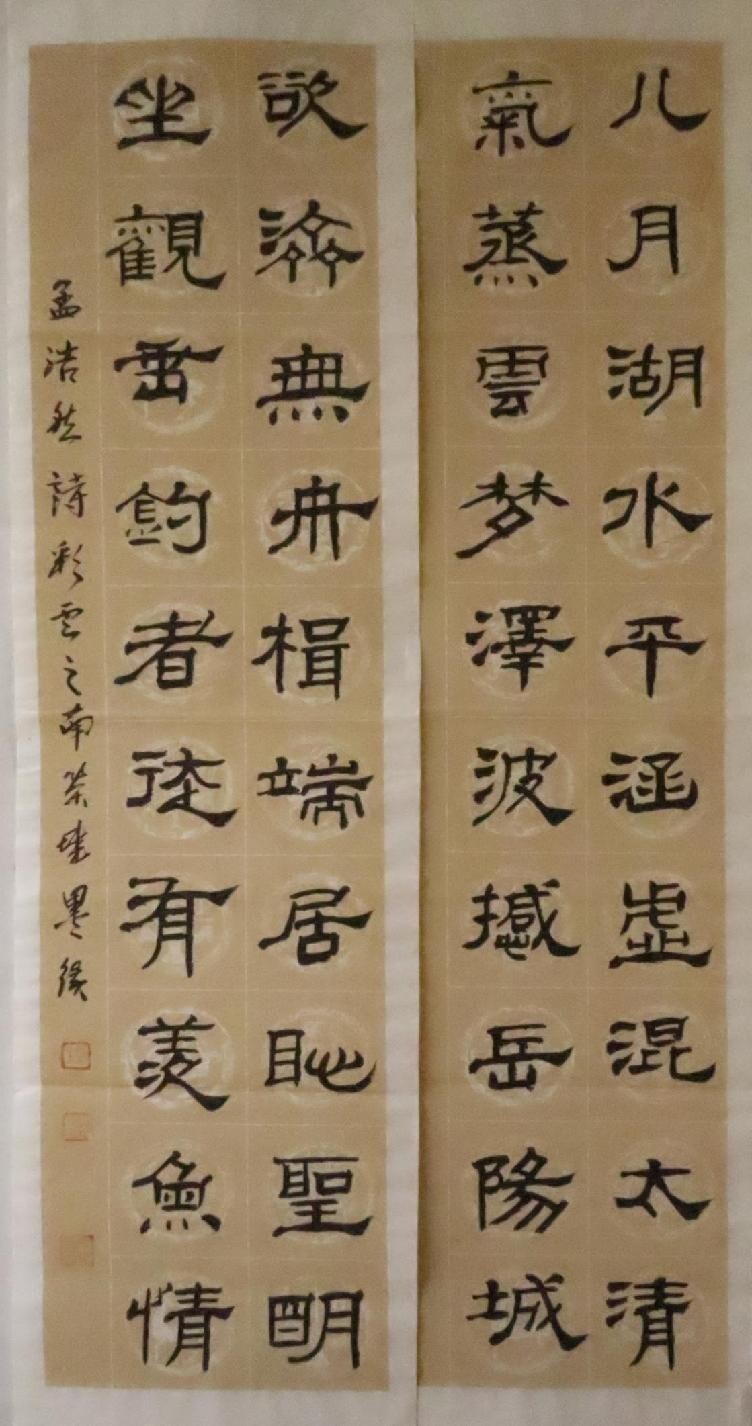 八月湖水平涵虛混太清
氣蒸雲梦澤波撼岳陽城
欲濟無舟楫端居恥聖明
坐觀垂釣者徒有羨魚情
孟浩然詩彩云之南墨緣